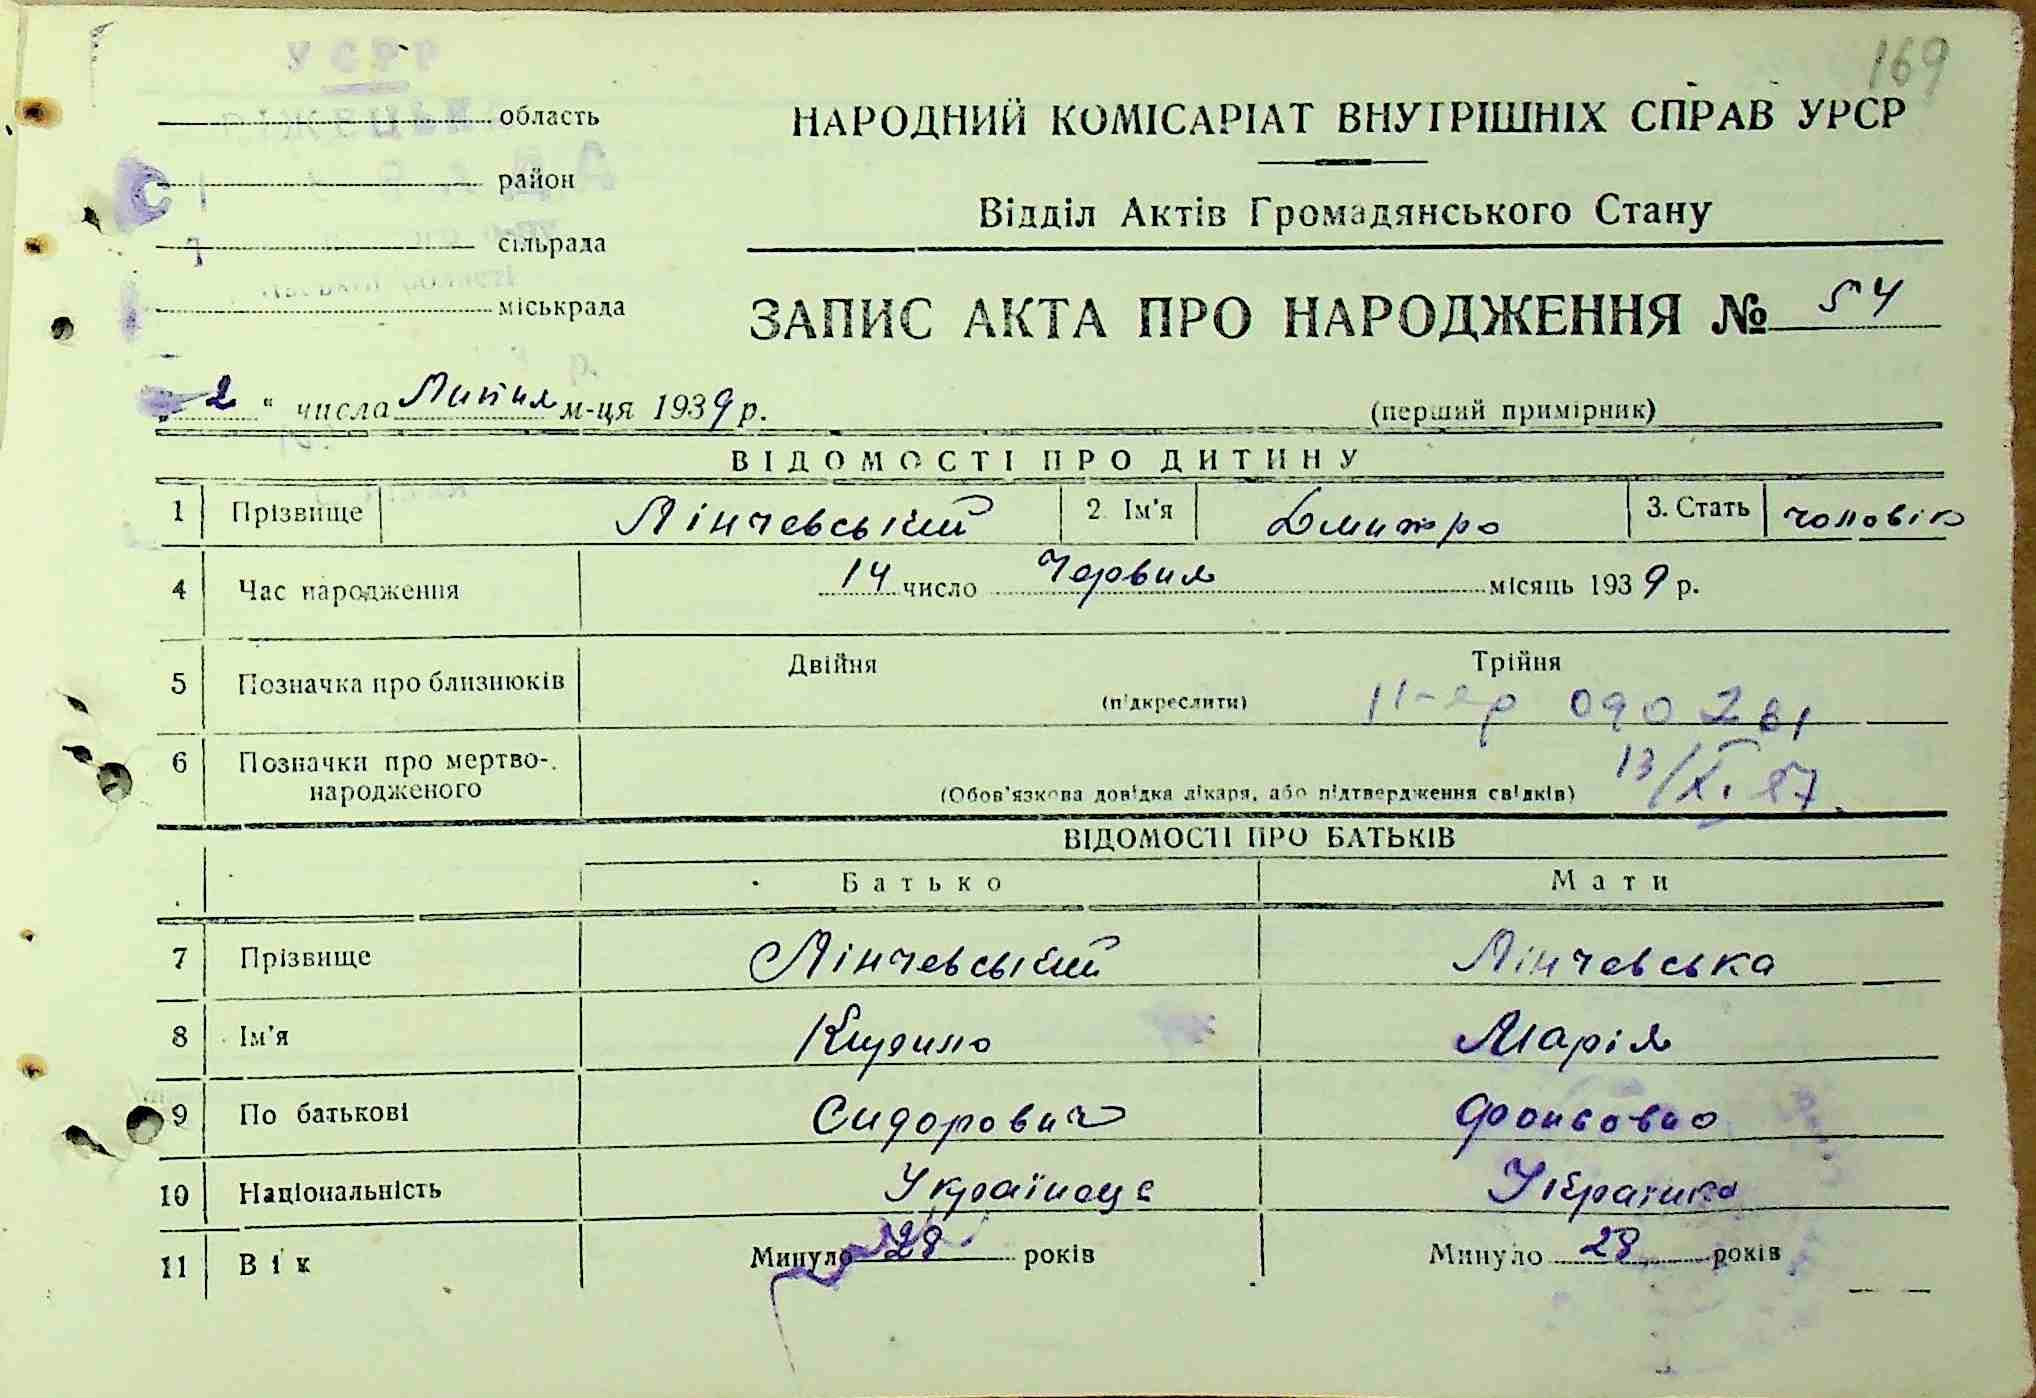 169
область
район
сільрада
міськрада
НАРОДНИЙ КОМІСАРІАТ ВНУТРІШНІХ СПРАВ УРСР
Відділ Актів Громадянського Стану
ЗАПИС АКТА ПРО НАРОДЖЕННЯ № 54
„2“ числа Липня м-ця 1939 р. (перший примірник)
ВІДОМОСТІ ПРО ДИТИНУ
1 Прізвище Лінчевський 2. Ім'я Дмитро 3. Стать чоловіч
4 Час народження 14 число Червня місяць 1939 р.
5 Позначка про близнюків Двійня Трійня
(підкреслити)
090281
6 Позначки про мертво-народженого (Обов'язкова довідка лікаря, або підтвердження свідків)
13/XI.57.
ВІДОМОСТІ ПРО БАТЬКІВ
Батько Мати
7 Прізвище Лінчевський Лінчевська
8 Ім'я Кирило Марія
9 По батькові Сидорович
10 Національність Українець Українка
11 Вік Минуло 28 років Минуло 28 років